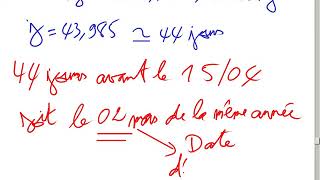 j = 43,985 ≃ 44 jours
44 jours avant le 15/04
soit le 02 mars de la même année
Date
d'